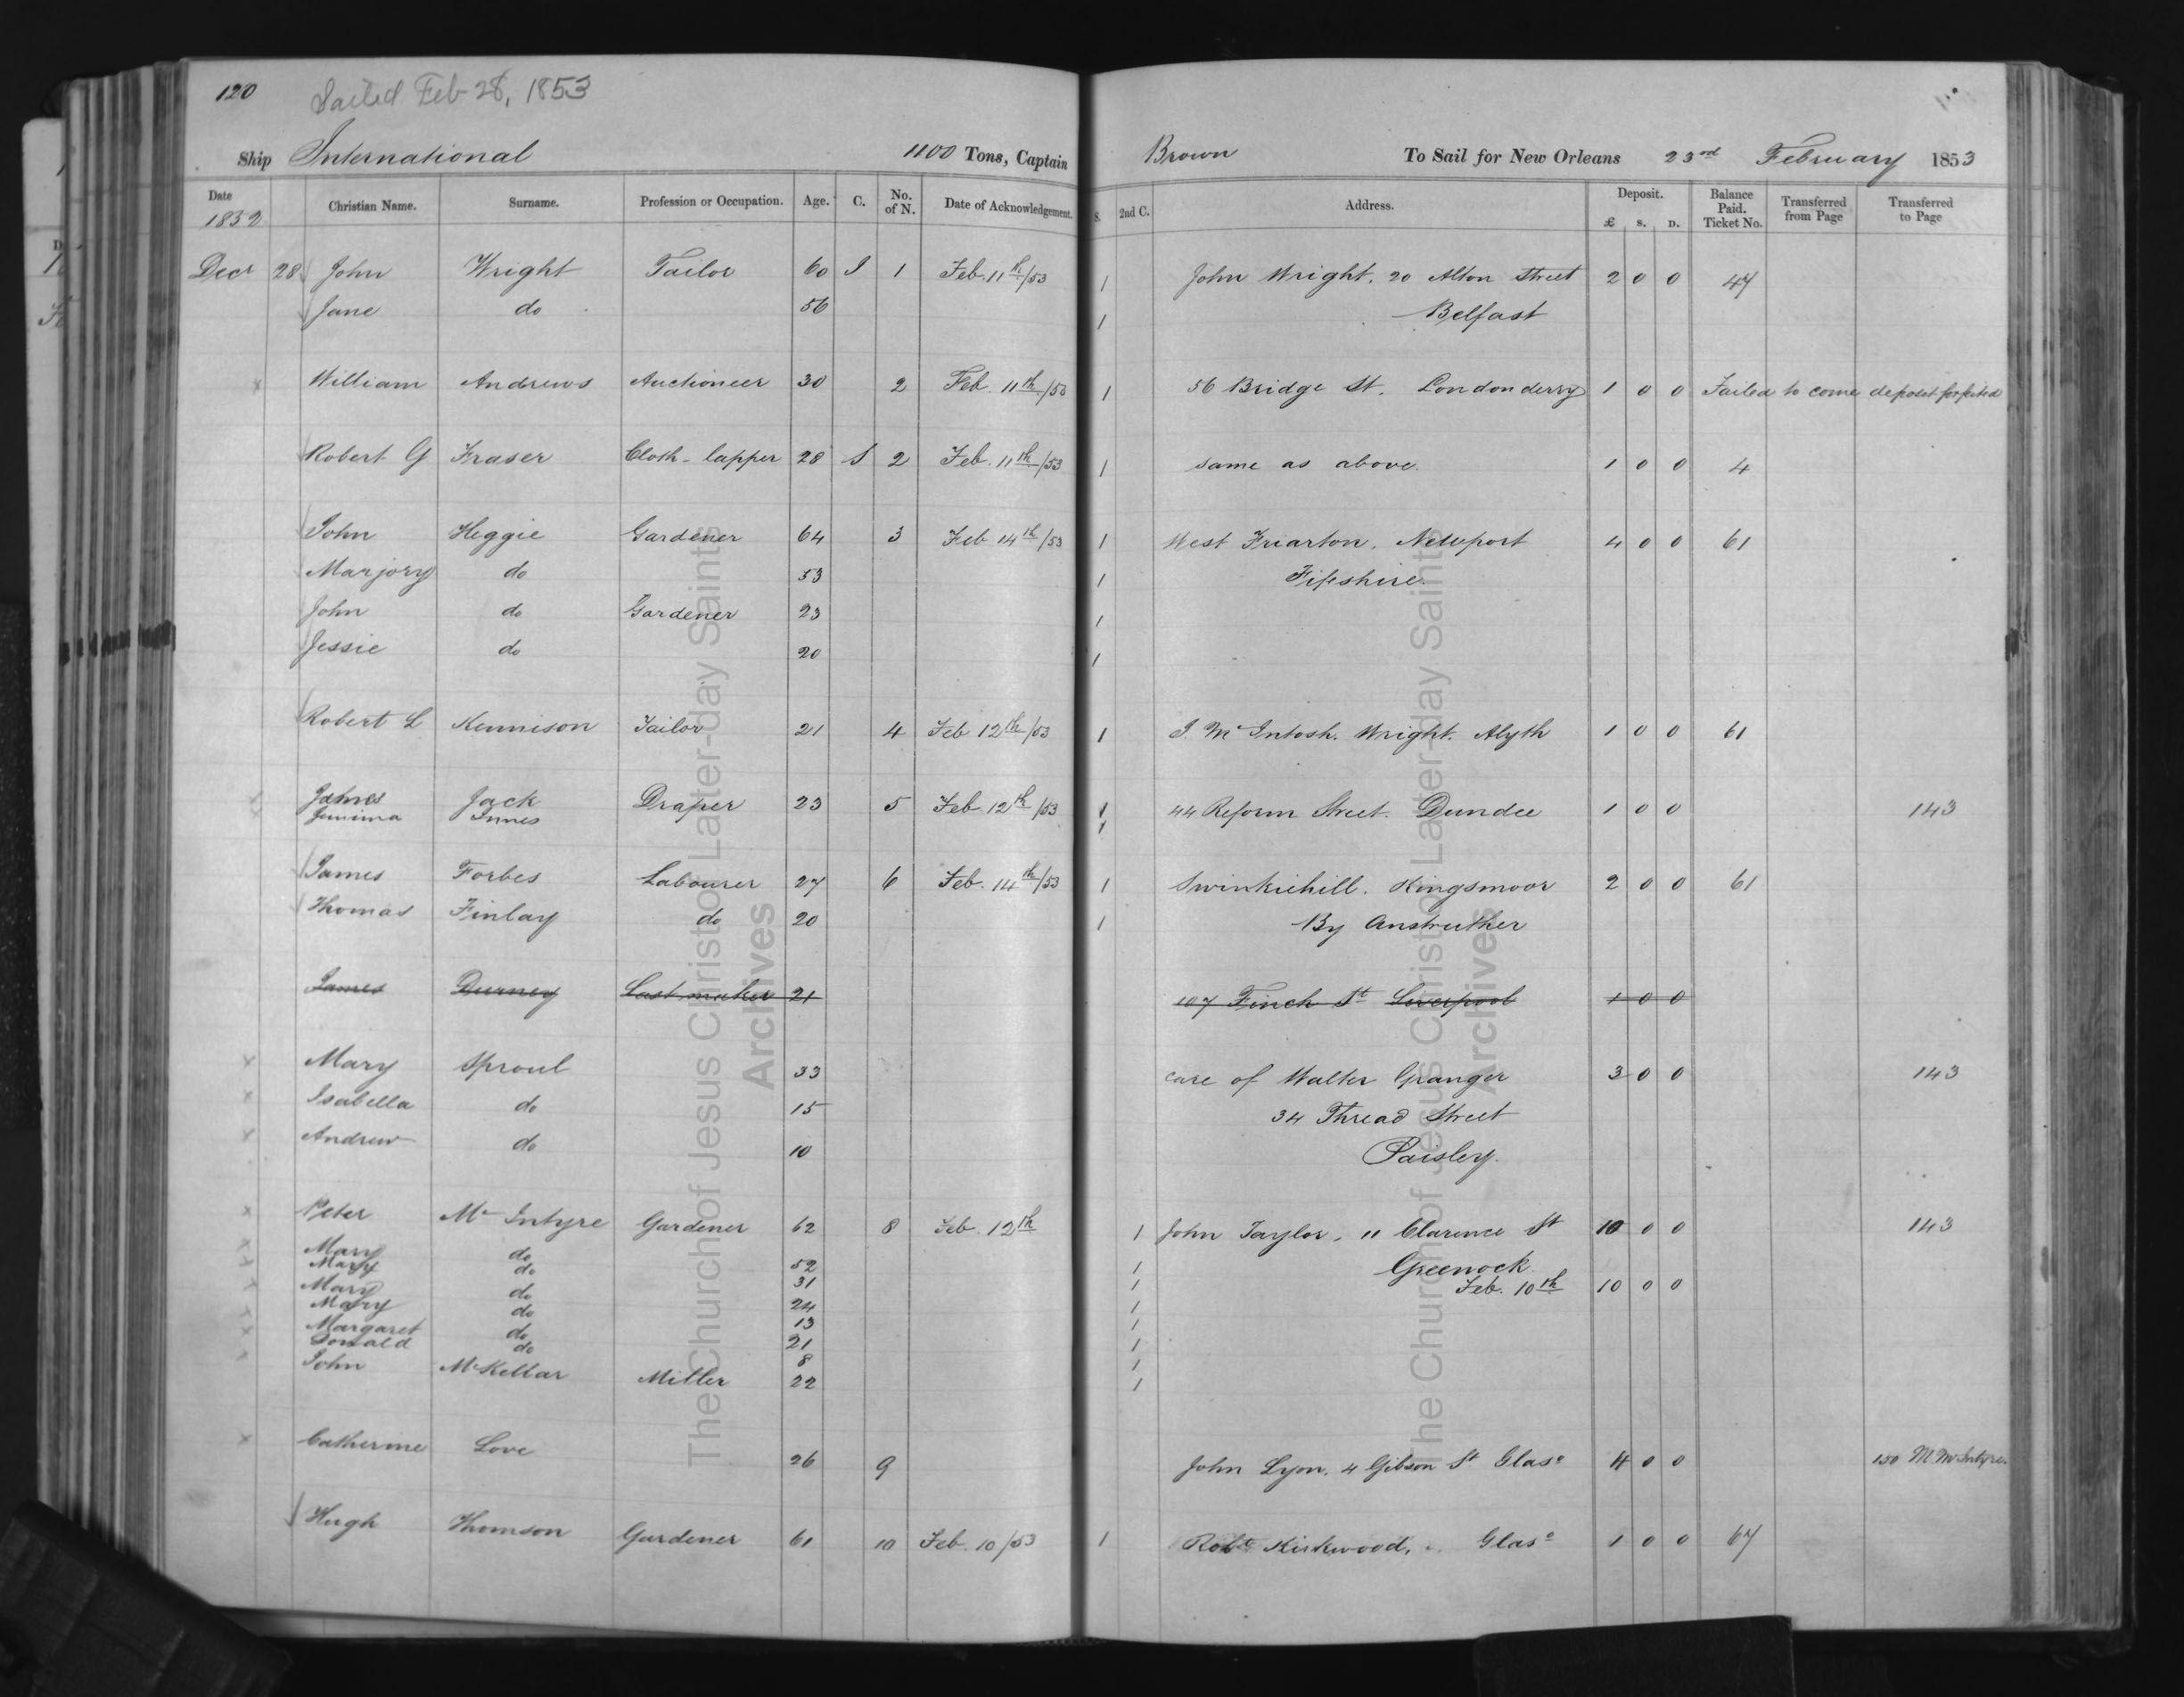 120 Sailed Feb 28, 1853
Ship International 1100 Tons, Captain Brown To Sail for New Orleans 23rd February 1853
Date 1852 Christian Name. Surname. Profession or Occupation. Age. C. No. of N. Date of Acknowledgement. S. 2nd C. Address. Deposit. £ s. D. Balance Paid. Ticket No. Transferred from Page Transferred to Page
Decr 28 John Wright Tailor 60 1 Feb. 11th/53 1 John Wright. 20 Alton Street 2 0 0 47
Jane do 56 1 Belfast
x William Andrews Auctioneer 30 2 Feb. 11th/53 1 56 Bridge St. Londonderry 1 0 0 Failed to come deposit forfeited
Robert G Fraser Cloth-lapper 28 S 2 Feb. 11th/53 1 same as above. 1 0 0 4
John Heggie Gardener 64 3 Feb 14th/53 1 West Friarton. Newport 4 0 0 61
Marjory do 53 1 Fifeshire.
John do Gardener 23 1
Jessie do 20 1
Robert L Kennison Tailor 21 4 Feb 12th/53 1 J McIntosh. Wright. Alyth 1 0 0 61
x James Jack Draper 23 5 Feb. 12th/53 1 44 Reform Street. Dundee 1 0 0 143
x Jemima Innes 1
James Forbes Labourer 27 6 Feb. 14th/53 1 Swinkiehill. Kingsmoor 2 0 0 61
Thomas Finlay do 20 1 By Anstruther
James Durney Last maker 21 107 Finch St Liverpool 1 0 0
x Mary Sproul 33 care of Walter Granger 3 0 0 143
x Isabella do 15 34 Thread Street
x Andrew do 10 Paisley.
x Peter McIntyre Gardener 62 8 Feb. 12th 1 John Taylor, 11 Clarence St 10 0 0 143
x Mary do 52 1 Greenock
x Mary do 31 1 Feb. 10th 10 0 0
x Mary do 24 1
x Mary do 13 1
x Margaret do 21 1
Donald do 8 1
x John McKellar Miller 22 1
x Catherine Love 26 9 John Lyon. 4 Gibson St Glaso 4 0 0 150 M. McIntyre.
Hugh Thomson Gardener 61 10 Feb. 10/53 1 Robt Kirkwood, Glaso 1 0 0 67
The Church of Jesus Christ of Latter-day Saints
Archives
The Church of Jesus Christ of Latter-day Saints
Archives